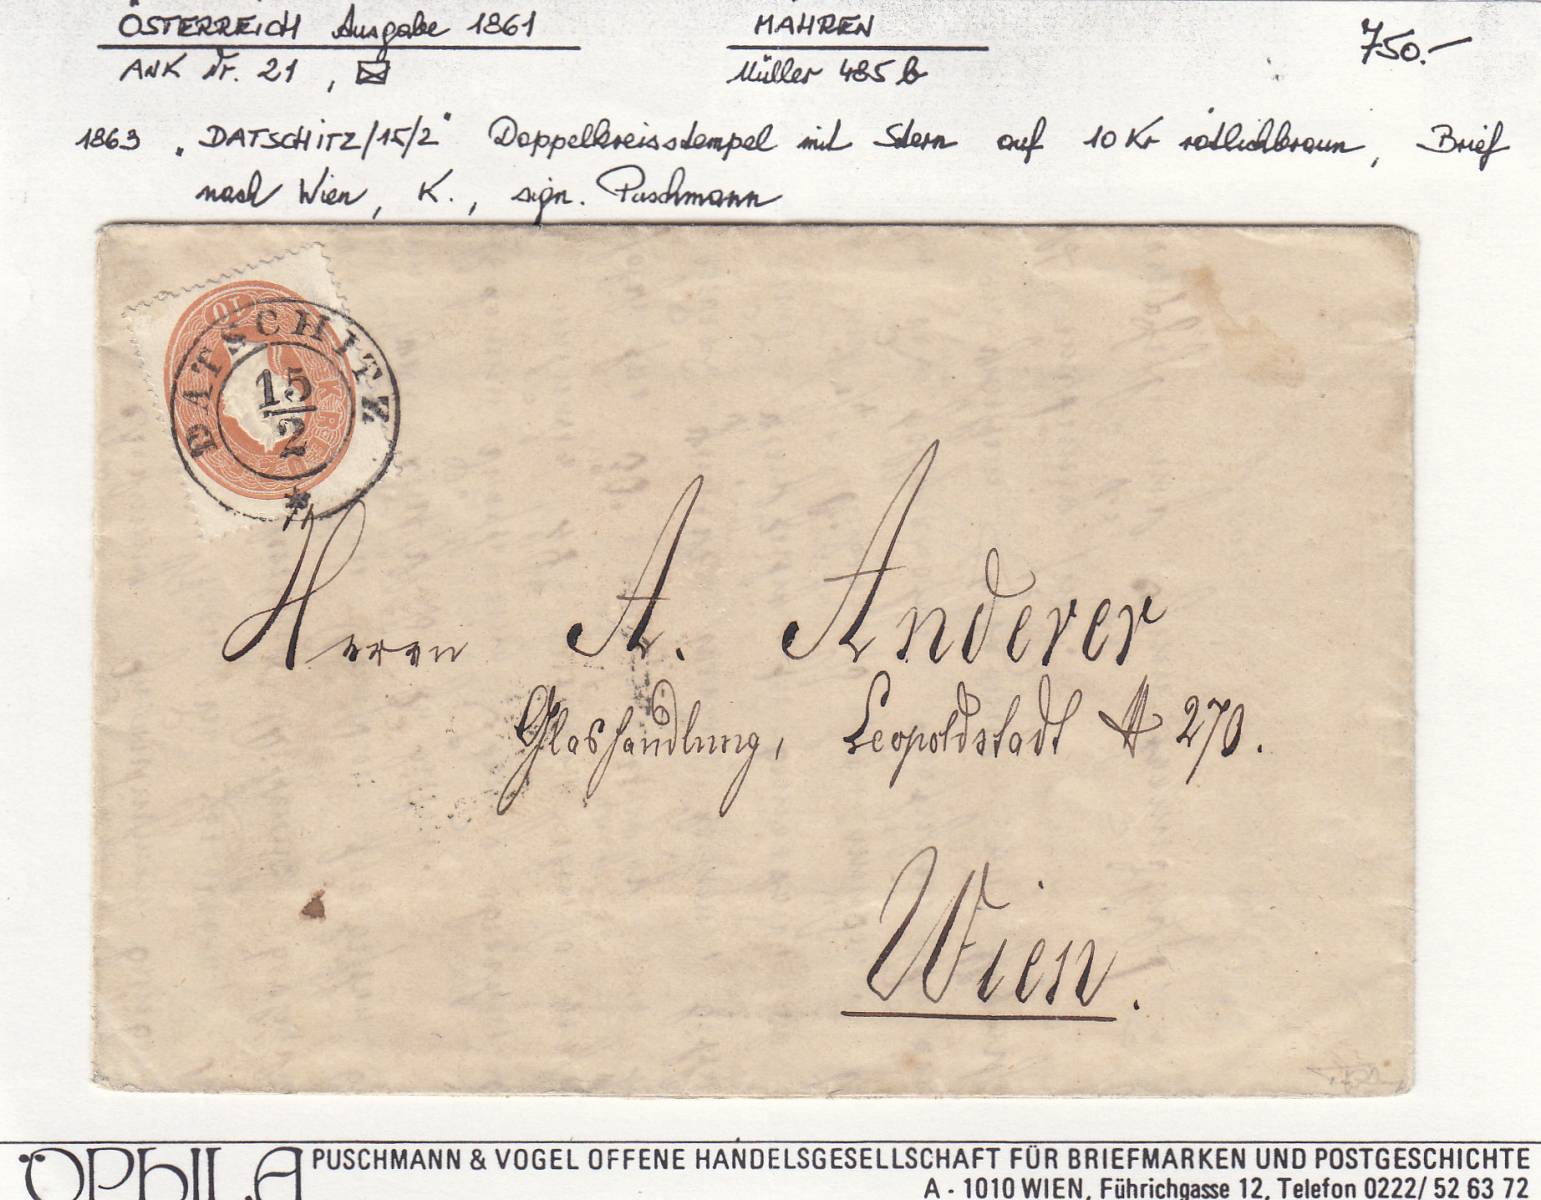 ÖSTERREICH Ausgabe 1861
MÄHREN
750.-
ANK Nr. 21,
Müller 485 b
1863 "DATSCHITZ/15/2" Doppelkreisstempel mit Stern auf 10 Kr rötlichbraun, Brief
nach Wien, K., sign. Puschmann
10
KREU
DATSCHITZ
15
2
*
Herrn A. Anderer
Glashandlung, Leopoldstadt # 270.
Wien.
ÖPHILA
PUSCHMANN & VOGEL OFFENE HANDELSGESELLSCHAFT FÜR BRIEFMARKEN UND POSTGESCHICHTE
A - 1010 WIEN, Führichgasse 12, Telefon 0222/ 52 63 72